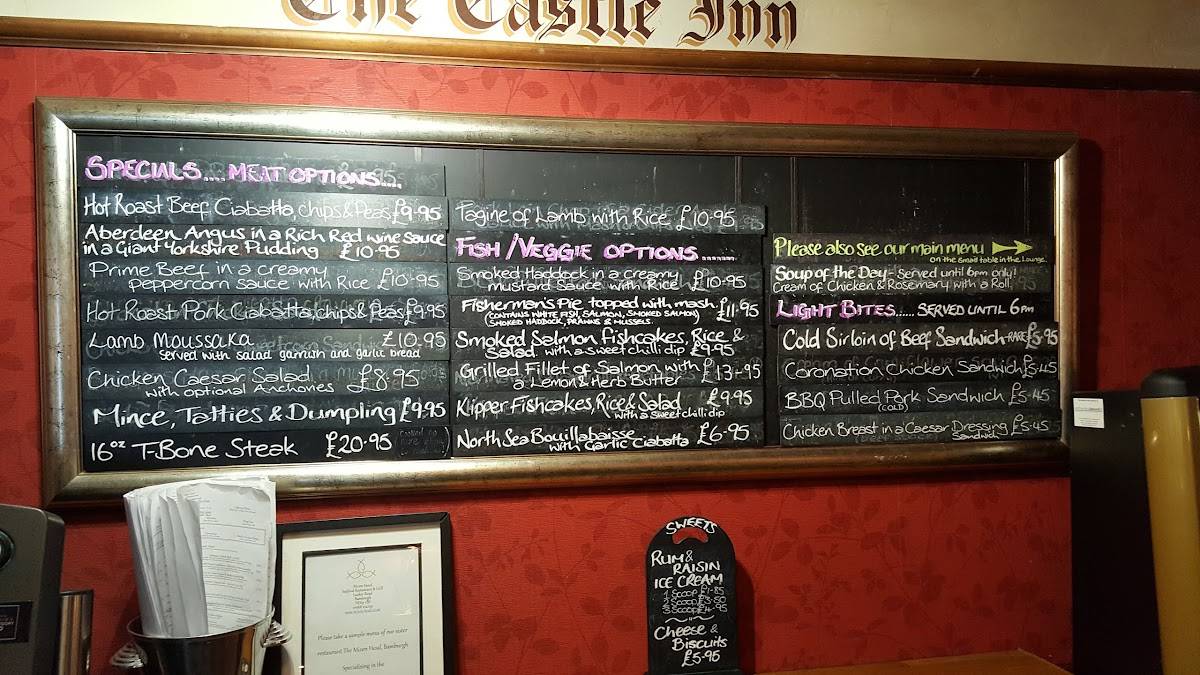 The Castle Inn
SPECIALS.... MEAT OPTIONS....
Hot Roast Beef Ciabatta, chips & Peas £9.95
Aberdeen Angus in a Rich Red wine sauce
in a Giant Yorkshire Pudding £10.95
Prime Beef in a creamy
peppercorn sauce with Rice £10.95
Hot Roast Pork Ciabatta, chips & Peas £9.95
Lamb Moussaka £10.95
Served with salad garnish and garlic bread
Chicken Caesar Salad £8.95
with optional Anchovies
Mince, Tatties & Dumpling £9.95
16oz T-Bone Steak £20.95
Tagine of Lamb with Rice £10.95
FISH/VEGGIE OPTIONS.......
Smoked Haddock in a creamy
mustard sauce with Rice £10.95
Fisherman's Pie topped with mash £11.95
(CONTAINS WHITE FISH, SALMON, SMOKED SALMON)
SMOKED HADDOCK, PRAWNS & MUSSELS.
Smoked Salmon Fishcakes, Rice &
Salad with a sweet chilli dip £9.95
Grilled Fillet of Salmon with £13-95
a Lemon & Herb Butter
Kipper Fishcakes, Rice & Salad £9.95
with a sweet chilli dip
North Sea Bouillabaisse £6.95
with Garlic Ciabatta
Please also see our main menu
on the small table in the Lounge.
Soup of the Day - Served until 6pm only!
Cream of Chicken & Rosemary with a Roll
LIGHT BITES...... SERVED UNTIL 6pm
Cold Sirloin of Beef Sandwich -RARE £5.95
Coronation Chicken Sandwich £5.45
BBQ Pulled Pork Sandwich £5.45
(COLD)
Chicken Breast in a Caesar Dressing £5.45
Sandwich
SWEETS
RUM &
RAISIN
ICE CREAM
1 Scoop
2 Scoop
3 Scoop
Cheese &
Biscuits
£5.95
Please take a sample menu of our sister
restaurant The Mizen Head, Bamburgh
Specialising in the